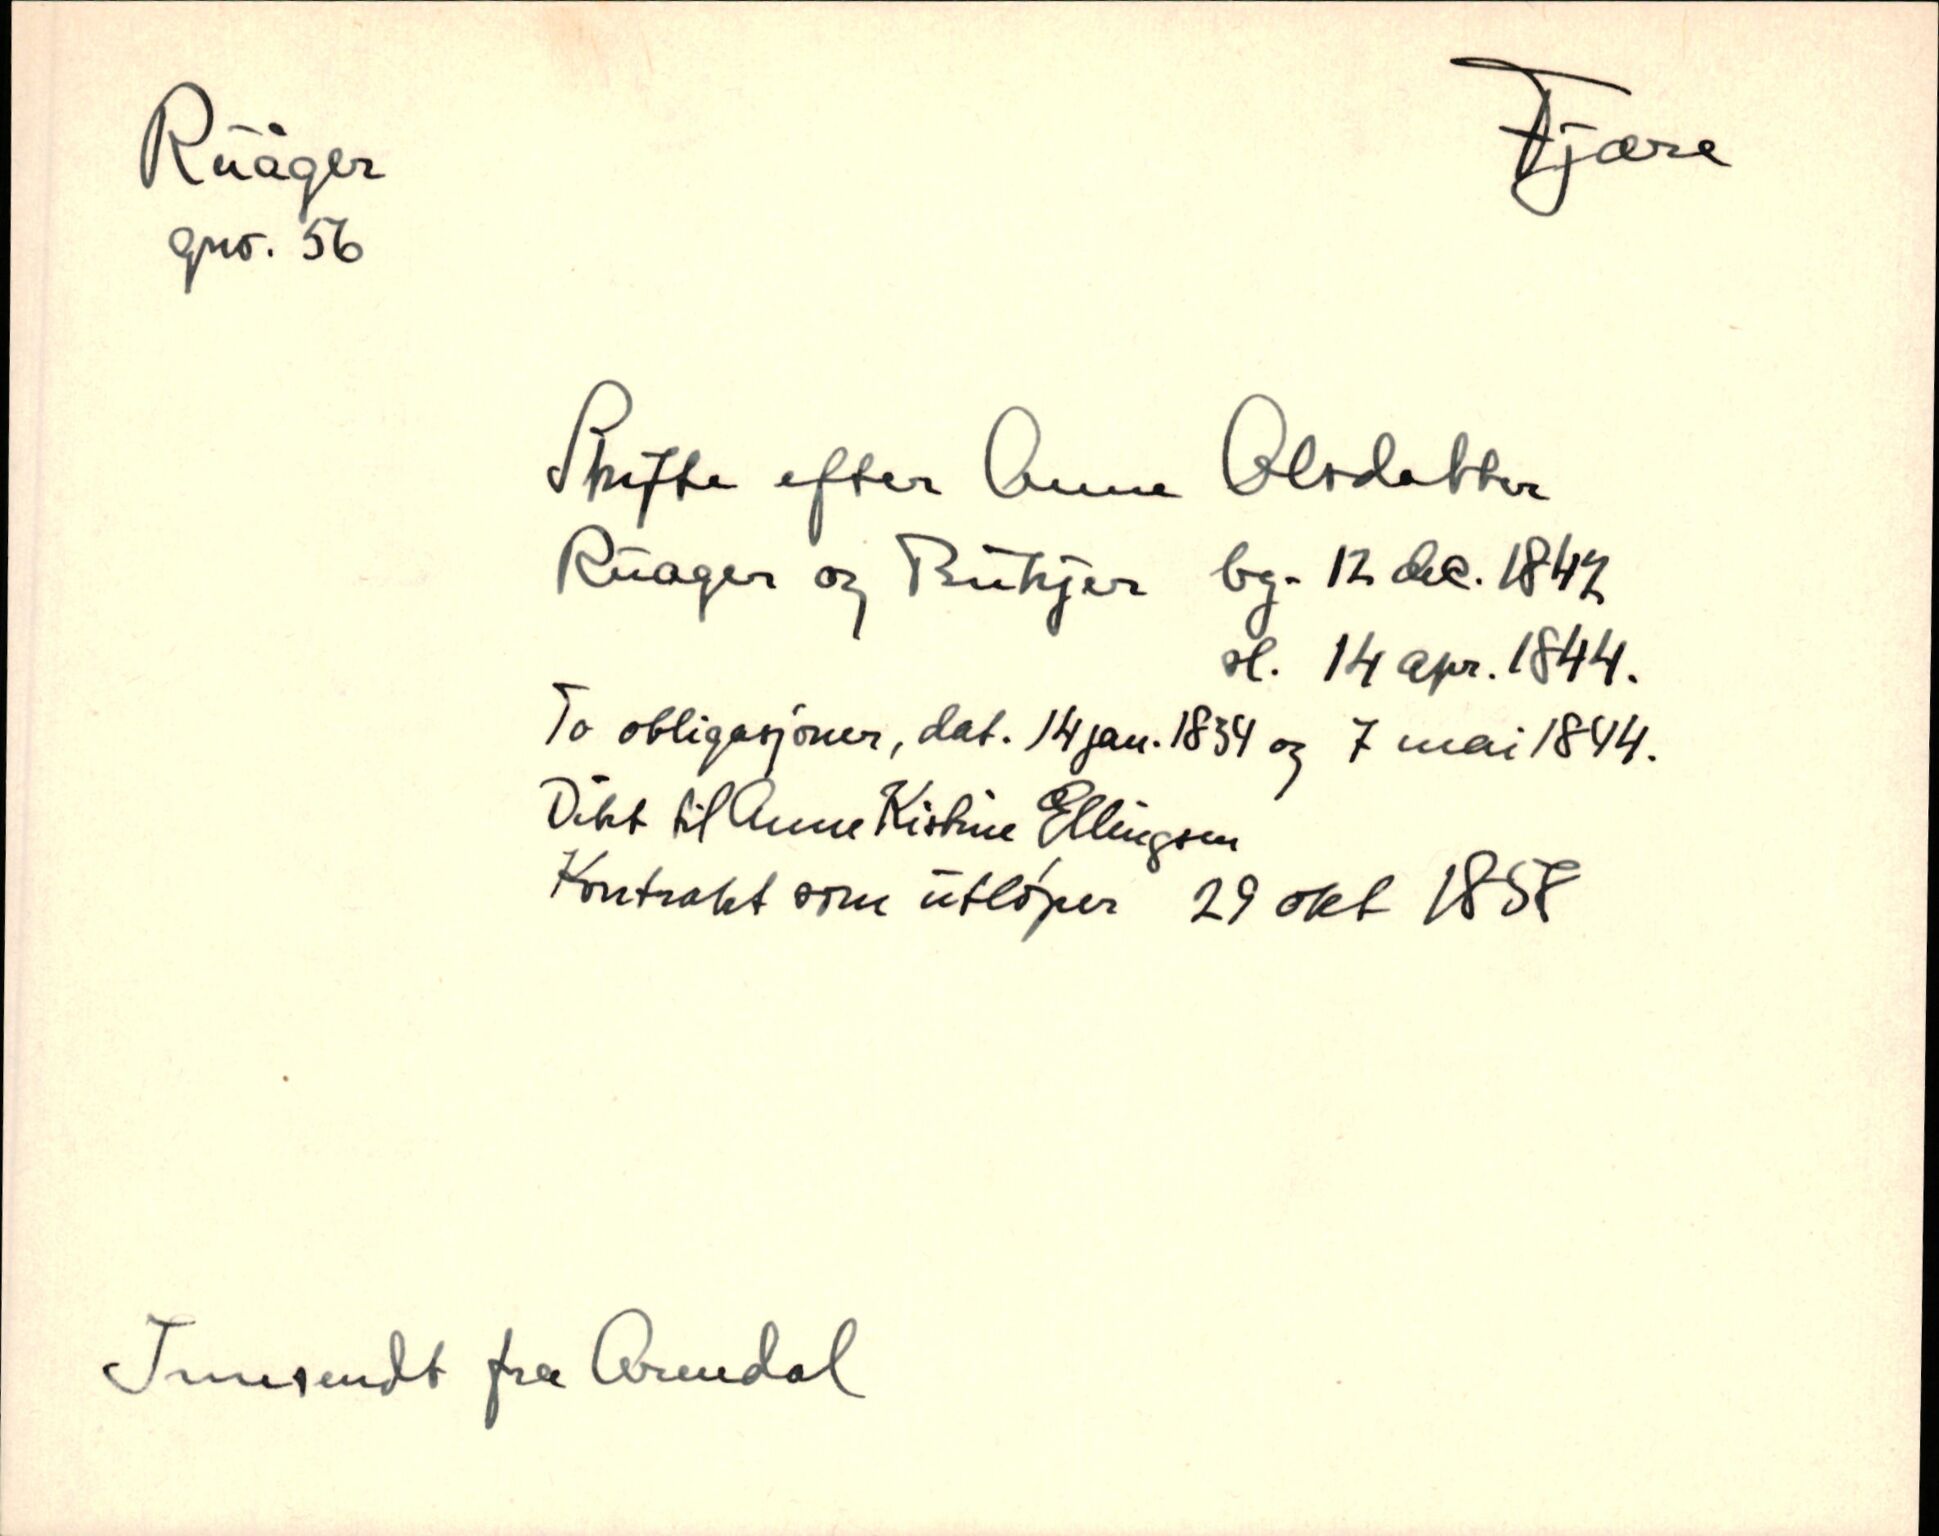 Ruåger
gno. 56
Fjære
Skifte efter Anne Olsdatter
Ruager og Rukjer bg. 12 dec. 1842
sl. 14 apr. 1844.
To obligasjoner, dat. 14 jan. 1834 og 7 mai 1844.
Dikt til Anne Kistine Ellingsen
Kontrakt som utlöper 29 okt 1858
Innsendt fra Arendal